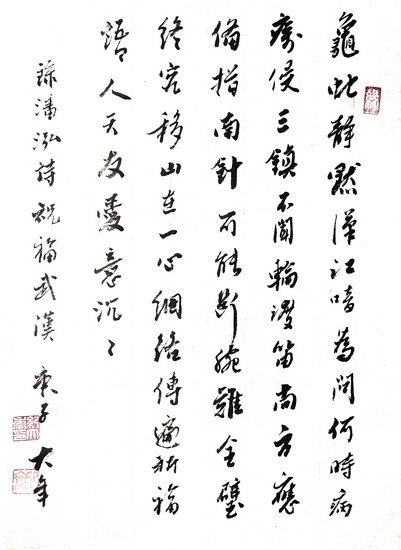 龜蛇靜默漢江喑為問何時病
侵三鎮不聞輪渡笛尚方應
備指南針可能斷腕難全璧
終究移山在一心網絡傳遞祈福
語人天友愛意沉々
錄潘泓詩祝福武漢 庚子 大年